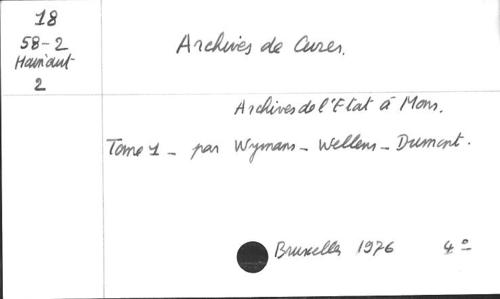 18
58-2
Hainaut
2
Archives de Cures.
Archives de l'Etat à Mons.
Tome 1 - par Wymans - Wellens - Dumont.
Bruxelles 1976 4°